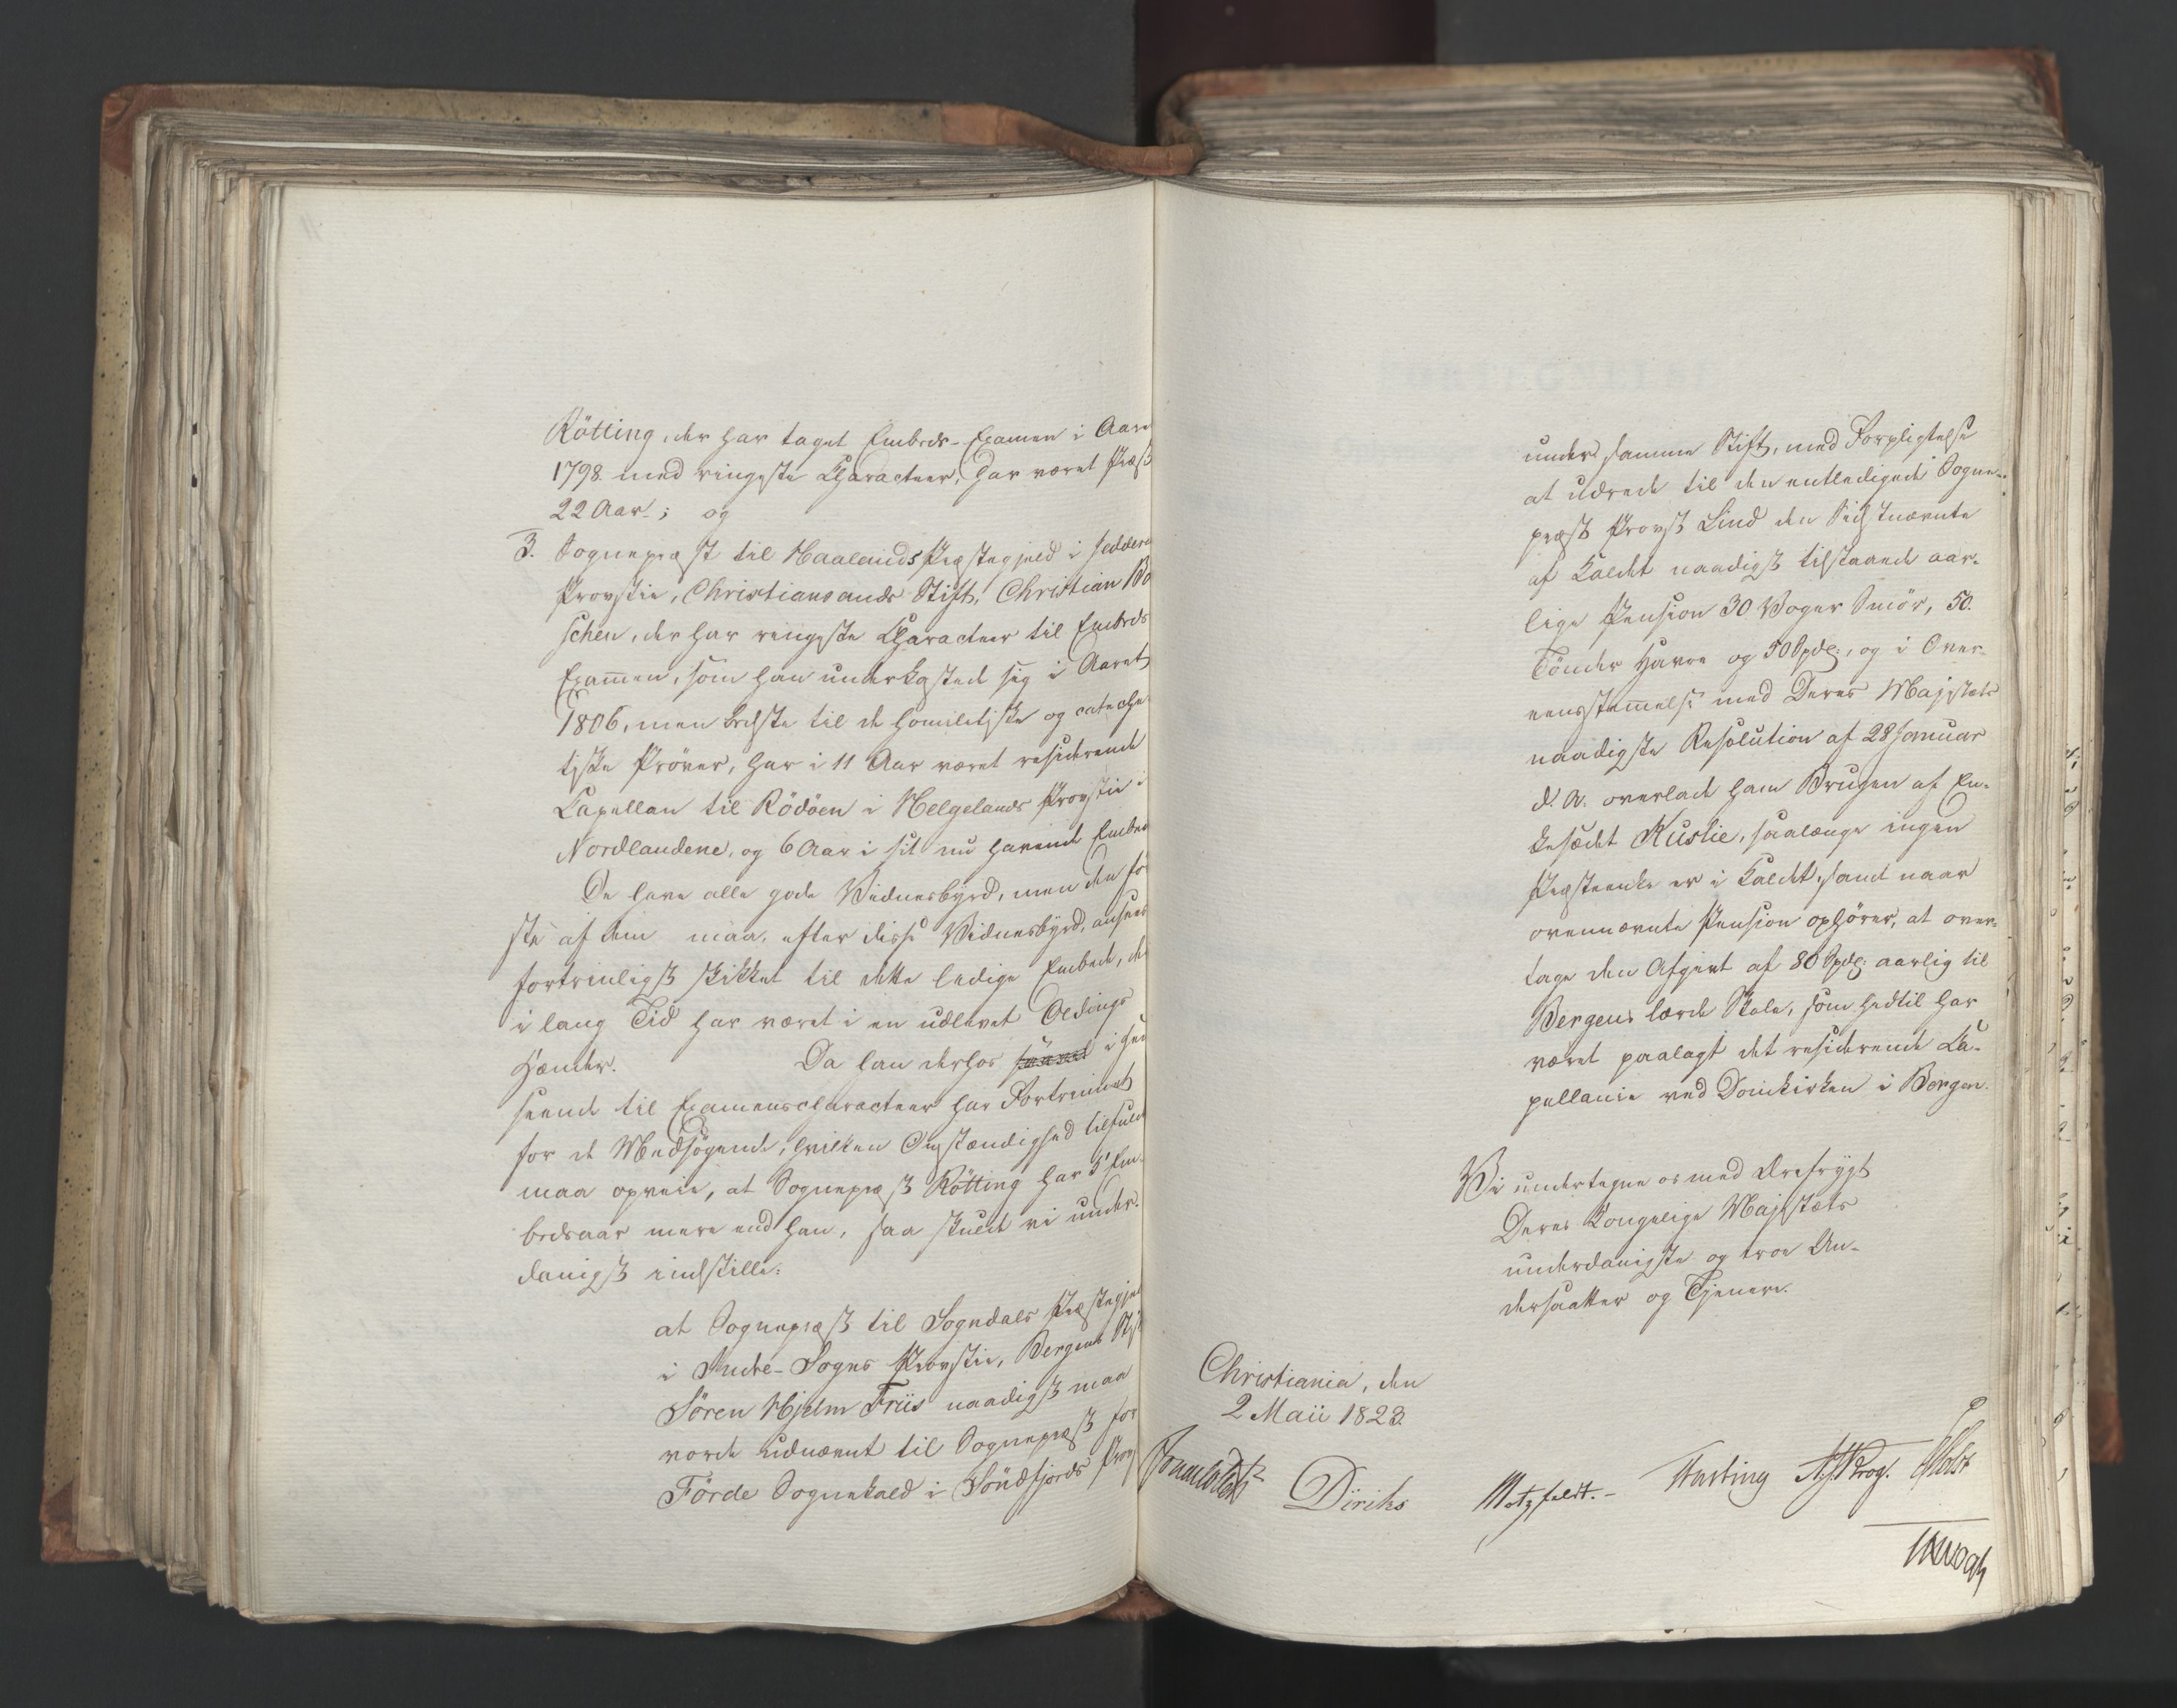 Rötting, der har taget Embeds-Examen i Aare
1798. med ringeste Characteer, har været Præst
22 Aar; og
3. Sognepræst til Haalands Præstegjeld i Jeddere
Provstie, Christiansands Stift, Christian Bo
schen, der har ringeste Characteer til Embeds
Examen, som han underkastede sig i Aaret
1806, men bedste til de homiletiske og cateche
tiske Prøver, har i 11 Aar været residerende
Capellan til Rödöen i Helgelands Provstie i
Nordlandene, og 6 Aar i sit nu havende Embed
De have alle gode Vidnesbyrd, men den før
ste af dem maa, efter disse Vidnesbyrd, ansees
fortrinligst skikket til dette ledige Embede, der
i lang Tid har været i en udlevet Oldings
Hænder. Da han derhos i Hen
seende til Examenscharacteer har Fortrinnet
for de Medsøgende, hvilken Omstændighed tilfulde
maa opveie, at Sognepræst Rötting har 5 Em-
bedsaar mere end han, saa skulde vi under-
danigst indstille:
at Sognepræst til Sogndals Præstegjel
i Indre-Sogns Provstie, Bergens Stift
Sören Hjelm Friis naadigst maa
vorde udnævnt til Sognepræst for
Förde Sognekald i Söndfjords Prov
under samme Stift, med Forpligtelse
at udrede til den entledigede Sogne-
præst Provst Lind den Sidstnævnte
af Kaldet naadigst tilstaaede aar-
lige Pension 30 Voger Smör, 50
Tönder Havre og 50 Spdlr., og i Over-
eensstemmelse med Deres Majestæts
naadigste Resolution af 28 Januar
d. A. overlade ham Brugen af En-
kesædet Kuslie, saalænge ingen
Præsteenke er i Kaldet, samt naar
ovennævnte Pension ophörer, at over-
tage den Afgivt af 80 Spdlr. aarlig til
Bergens lærde Skole, som hidtil har
været paalagt det residerende Ca-
pellanie ved Domkirken i Bergen.
Vi undertegne os med Ærefrygt
Deres Kongelige Majestæts
underdanigste og troe Un-
dersaatter og Tjenere.
Christiania, den
2 Maii 1823.
Sommerhielm Diriks Motzfeldt. Fasting Krog. Holst